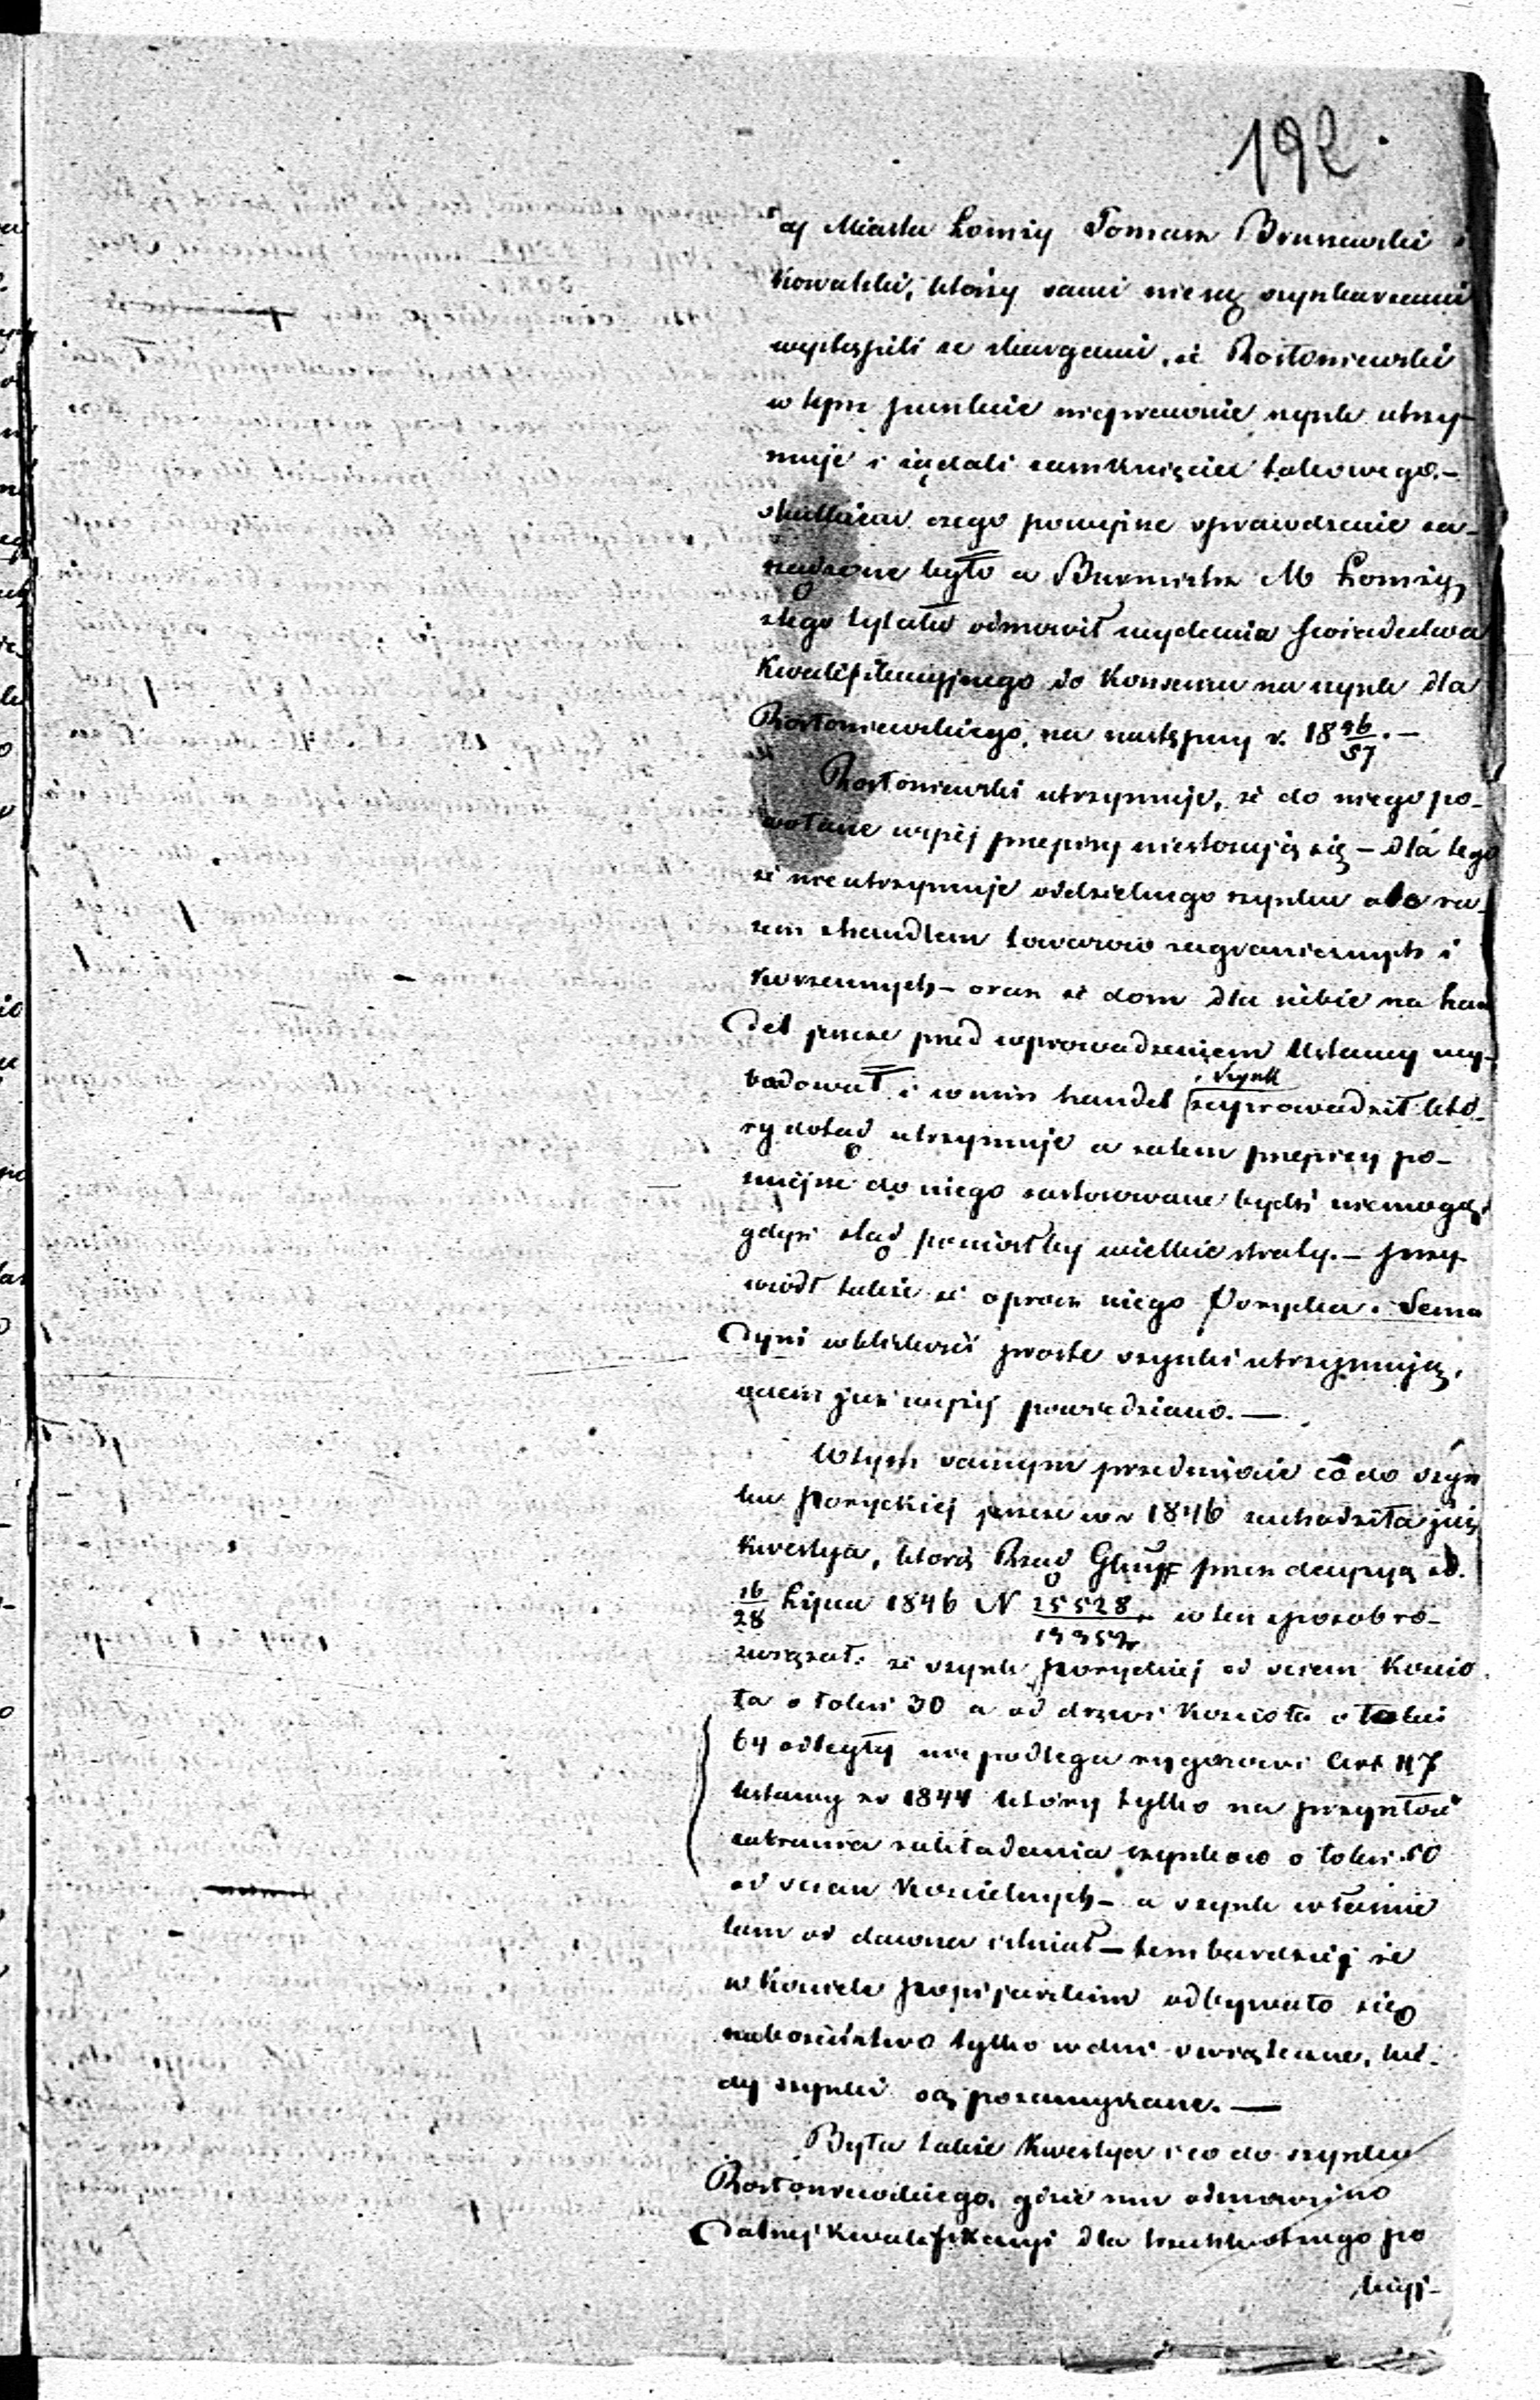 192.
cy Miasta Łomży Tomasz Brunawski i
Kowalski, którzy sami nie są szynkarzami
wystąpili ze skargami, że Rostoniewski
w tym punkcie nieprawnie szynk utrzy-
muje i żądali zamknięcia takowego.-
skutkiem czego powyższe sprawdzenie za-
rządzone było a Burmistrz M Łomży
z tego tytułu odmówił wydania świadectwa
kwalifikacyjnego do Konsensu na szynk dla
Rostoniewskiego, na następny r. 1846/57.-
Rostoniewski utrzymuje, że do niego po-
wołane wyżej przepisy niestosują się - dla tego
że nieutrzymuje oddzielnego szynku ale ra-
zem z handlem towarów zagranicznych i
korzennych - oraz że dom dla siebie na han
del jeszcze przed wprowadzeniem Ustawy wy-
budował i w nim handel i szynk zaprowadził któ-
ry dotąd utrzymuje a zatem przepisy po-
wyższe do niego zastosowane bydź niemogą,
gdyż ztąd poniósłby wielkie straty. - przy
wiódł także że oprócz niego Porycka i Sema
dyni w bliskości proste szynki utrzymują,
o czem już wyżej powiedziano. -
W tym samym przedmiocie co do szyn
ku Poryckiej jeszcze w r 1846 zachodziła już
kwestya, którą Rząd Gub przez decyzyą od.
16/28 Lipca 1846 N 25528/ w ten sposób ro-
związał: że szynk Poryckiej od ścian Kościo
ła o łokci 30 a od drzwi Kościoła o łokci
64 odległy nie podlega rygorowi Art 47
Ustawy z r 1844 który tylko na przyszłość
zabrania zakładania szynków o łokci 50
od ścian Kościelnych - a szynk właśnie
tam od dawna istniał - tembardziej że
w Kościele popijarskim odbywało się
nabożeństwo tylko w dni świąteczne, kie-
dy szynki są pozamykane. -
Była także kwestya i co do szynku
Rostoniewskiego, gdzie mu odmówiono
dalszej kwalifikacyi dla po
wyż-